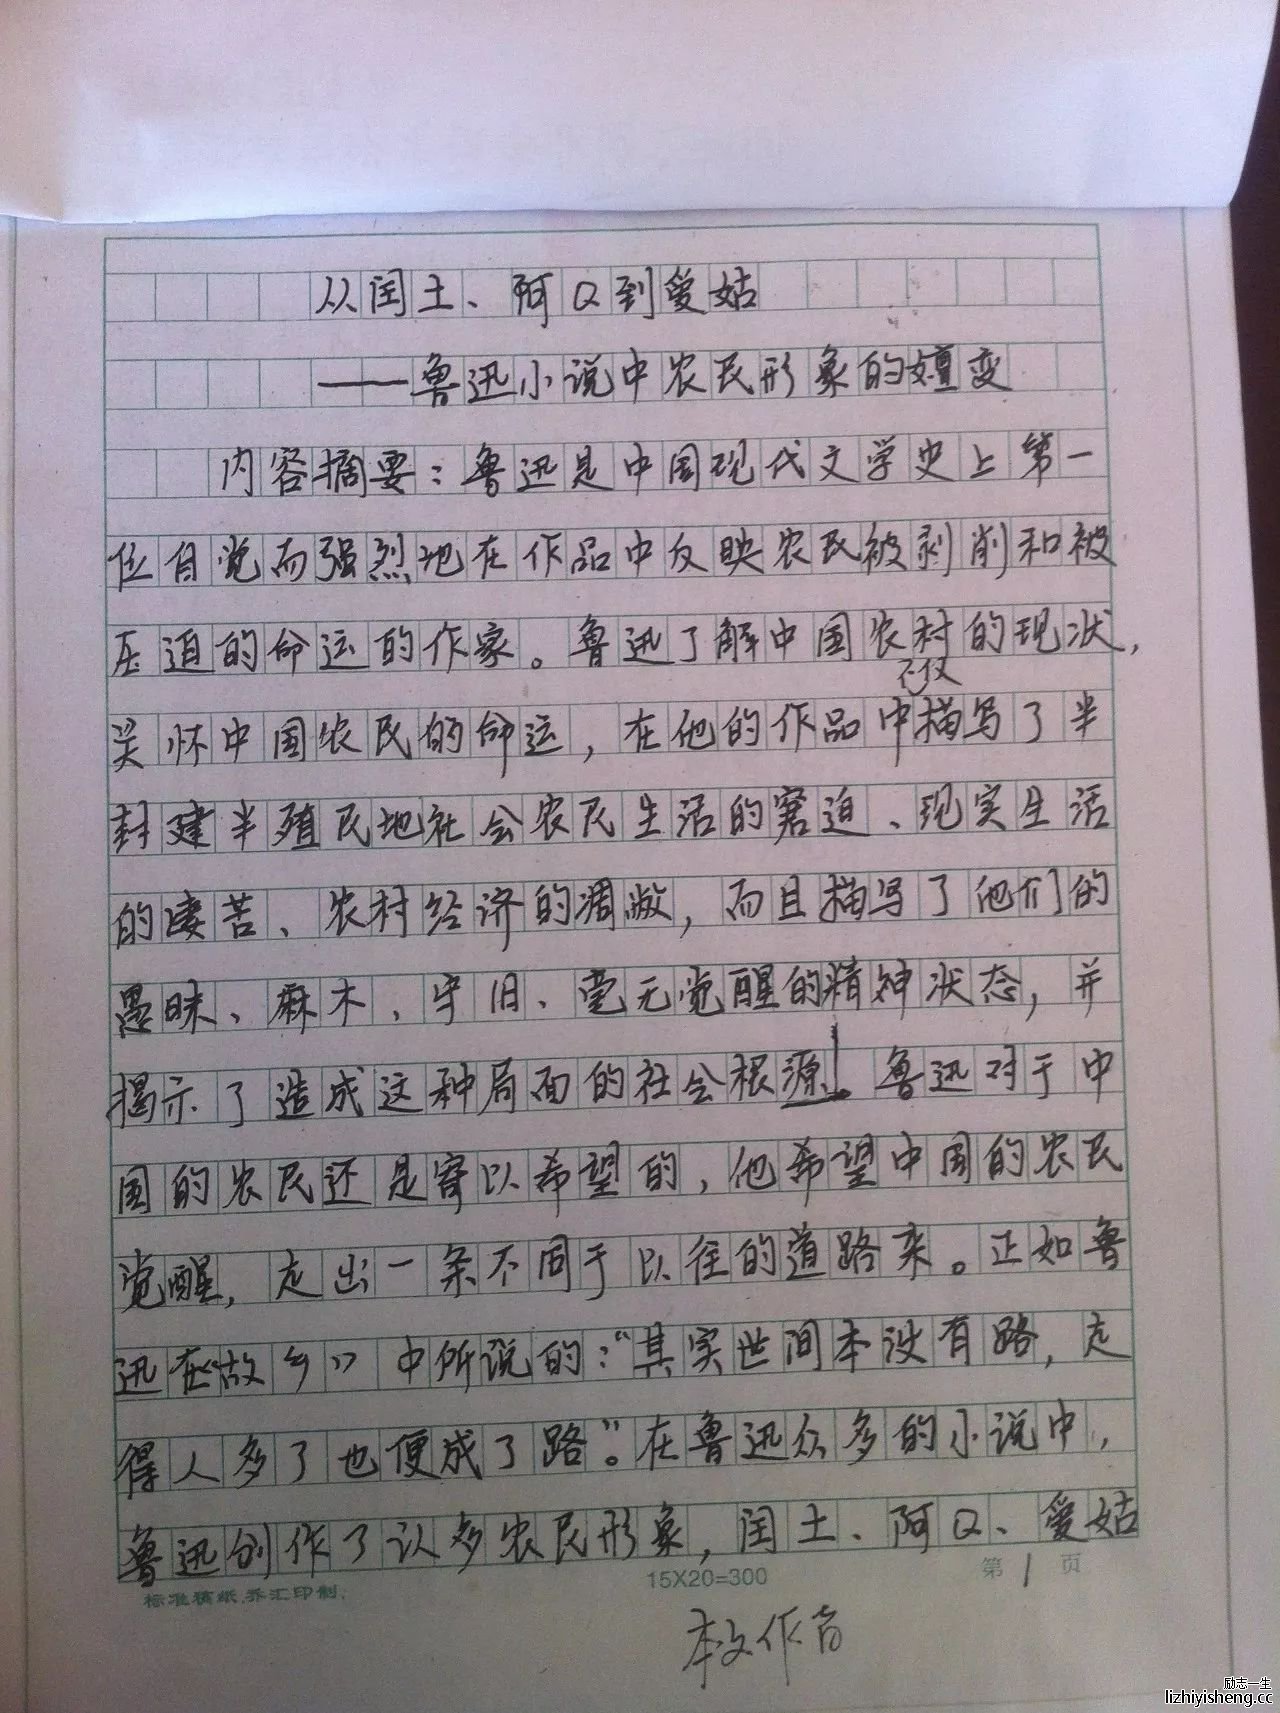 从闰土、阿Q到爱姑
——鲁迅小说中农民形象的嬗变
内容摘要：鲁迅是中国现代文学史上第一
位自觉而强烈地在作品中反映农民被剥削和被
压迫的命运的作家。鲁迅了解中国农村的现状，
不仅
关怀中国农民的命运，在他的作品中描写了半
封建半殖民地社会农民生活的窘迫、现实生活
的凄苦、农村经济的凋敝，而且描写了他们的
愚昧、麻木、守旧、毫无觉醒的精神状态，并
揭示了造成这种局面的社会根源。鲁迅对于中
国的农民还是寄以希望的，他希望中国的农民
觉醒，走出一条不同于以往的道路来。正如鲁
迅在《故乡》中所说的：“其实世间本没有路，走
得人多了也便成了路”。在鲁迅众多的小说中，
鲁迅创作了许多农民形象，闰土、阿Q、爱姑
标准稿纸.乔汇印制.
15X20=300
第1页
本文作者
励志一生
lizhiyisheng.cc